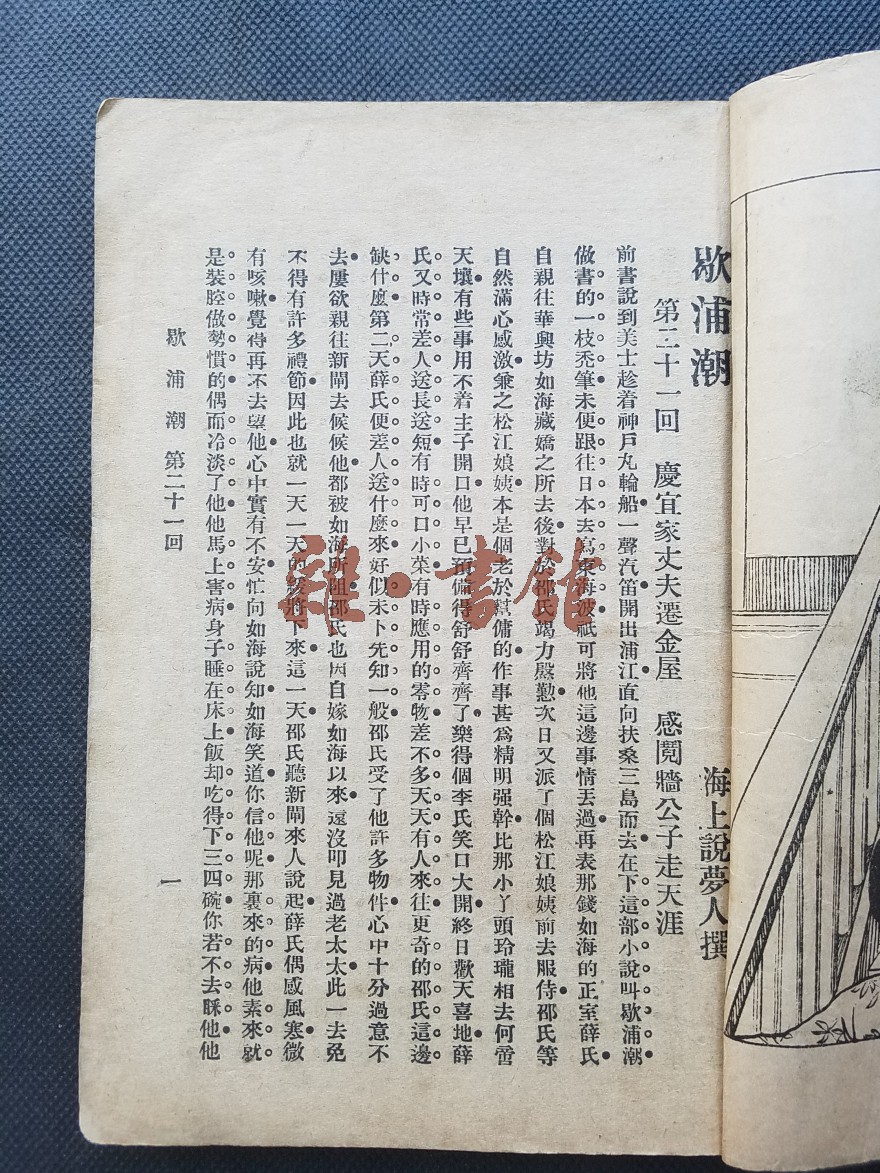 歇浦潮
海上說夢人撰
第二十一回　慶宜家丈夫遷金屋　感鬩牆公子走天涯
前書說到美士趁着神戶丸輪船一聲汽笛開出浦江直向扶桑三島而去在下這部小說叫歇浦潮
做書的一枝禿筆未便跟往日本去寫東海波祇可將他這邊事情丟過再表那錢如海的正室薛氏
自親往華興坊如海藏嬌之所去後對於邵氏竭力慇懃次日又派了個松江娘姨前去服侍邵氏等
自然滿心感激兼之松江娘姨本是個老於幫傭的作事甚爲精明强幹比那小丫頭玲瓏相去何啻
天壤有些事用不着主子開口他早已預備得舒舒齊齊了樂得個李氏笑口大開終日歡天喜地薛
氏又時常差人送長送短有時可口小菜有時應用的零物差不多天天有人來往更奇的邵氏這邊
缺什麼第二天薛氏便差人送什麼來好似未卜先知一般邵氏受了他許多物件心中十分過意不
去屢欲親往新閘去候候他都被如海所阻邵氏也因自嫁如海以來還沒叩見過老太太此一去免
不得有許多禮節因此也就一天一天的緩將下來這一天邵氏聽新閘來人說起薛氏偶感風寒微
有咳嗽覺得再不去望他心中實有不安忙向如海說知如海笑道你信他呢那裏來的病他素來就
是裝腔做勢慣的偶而冷淡了他他馬上害病身子睡在床上飯却吃得下三四碗你若不去睬他他
歇浦潮　第二十一回
一
雜·書館